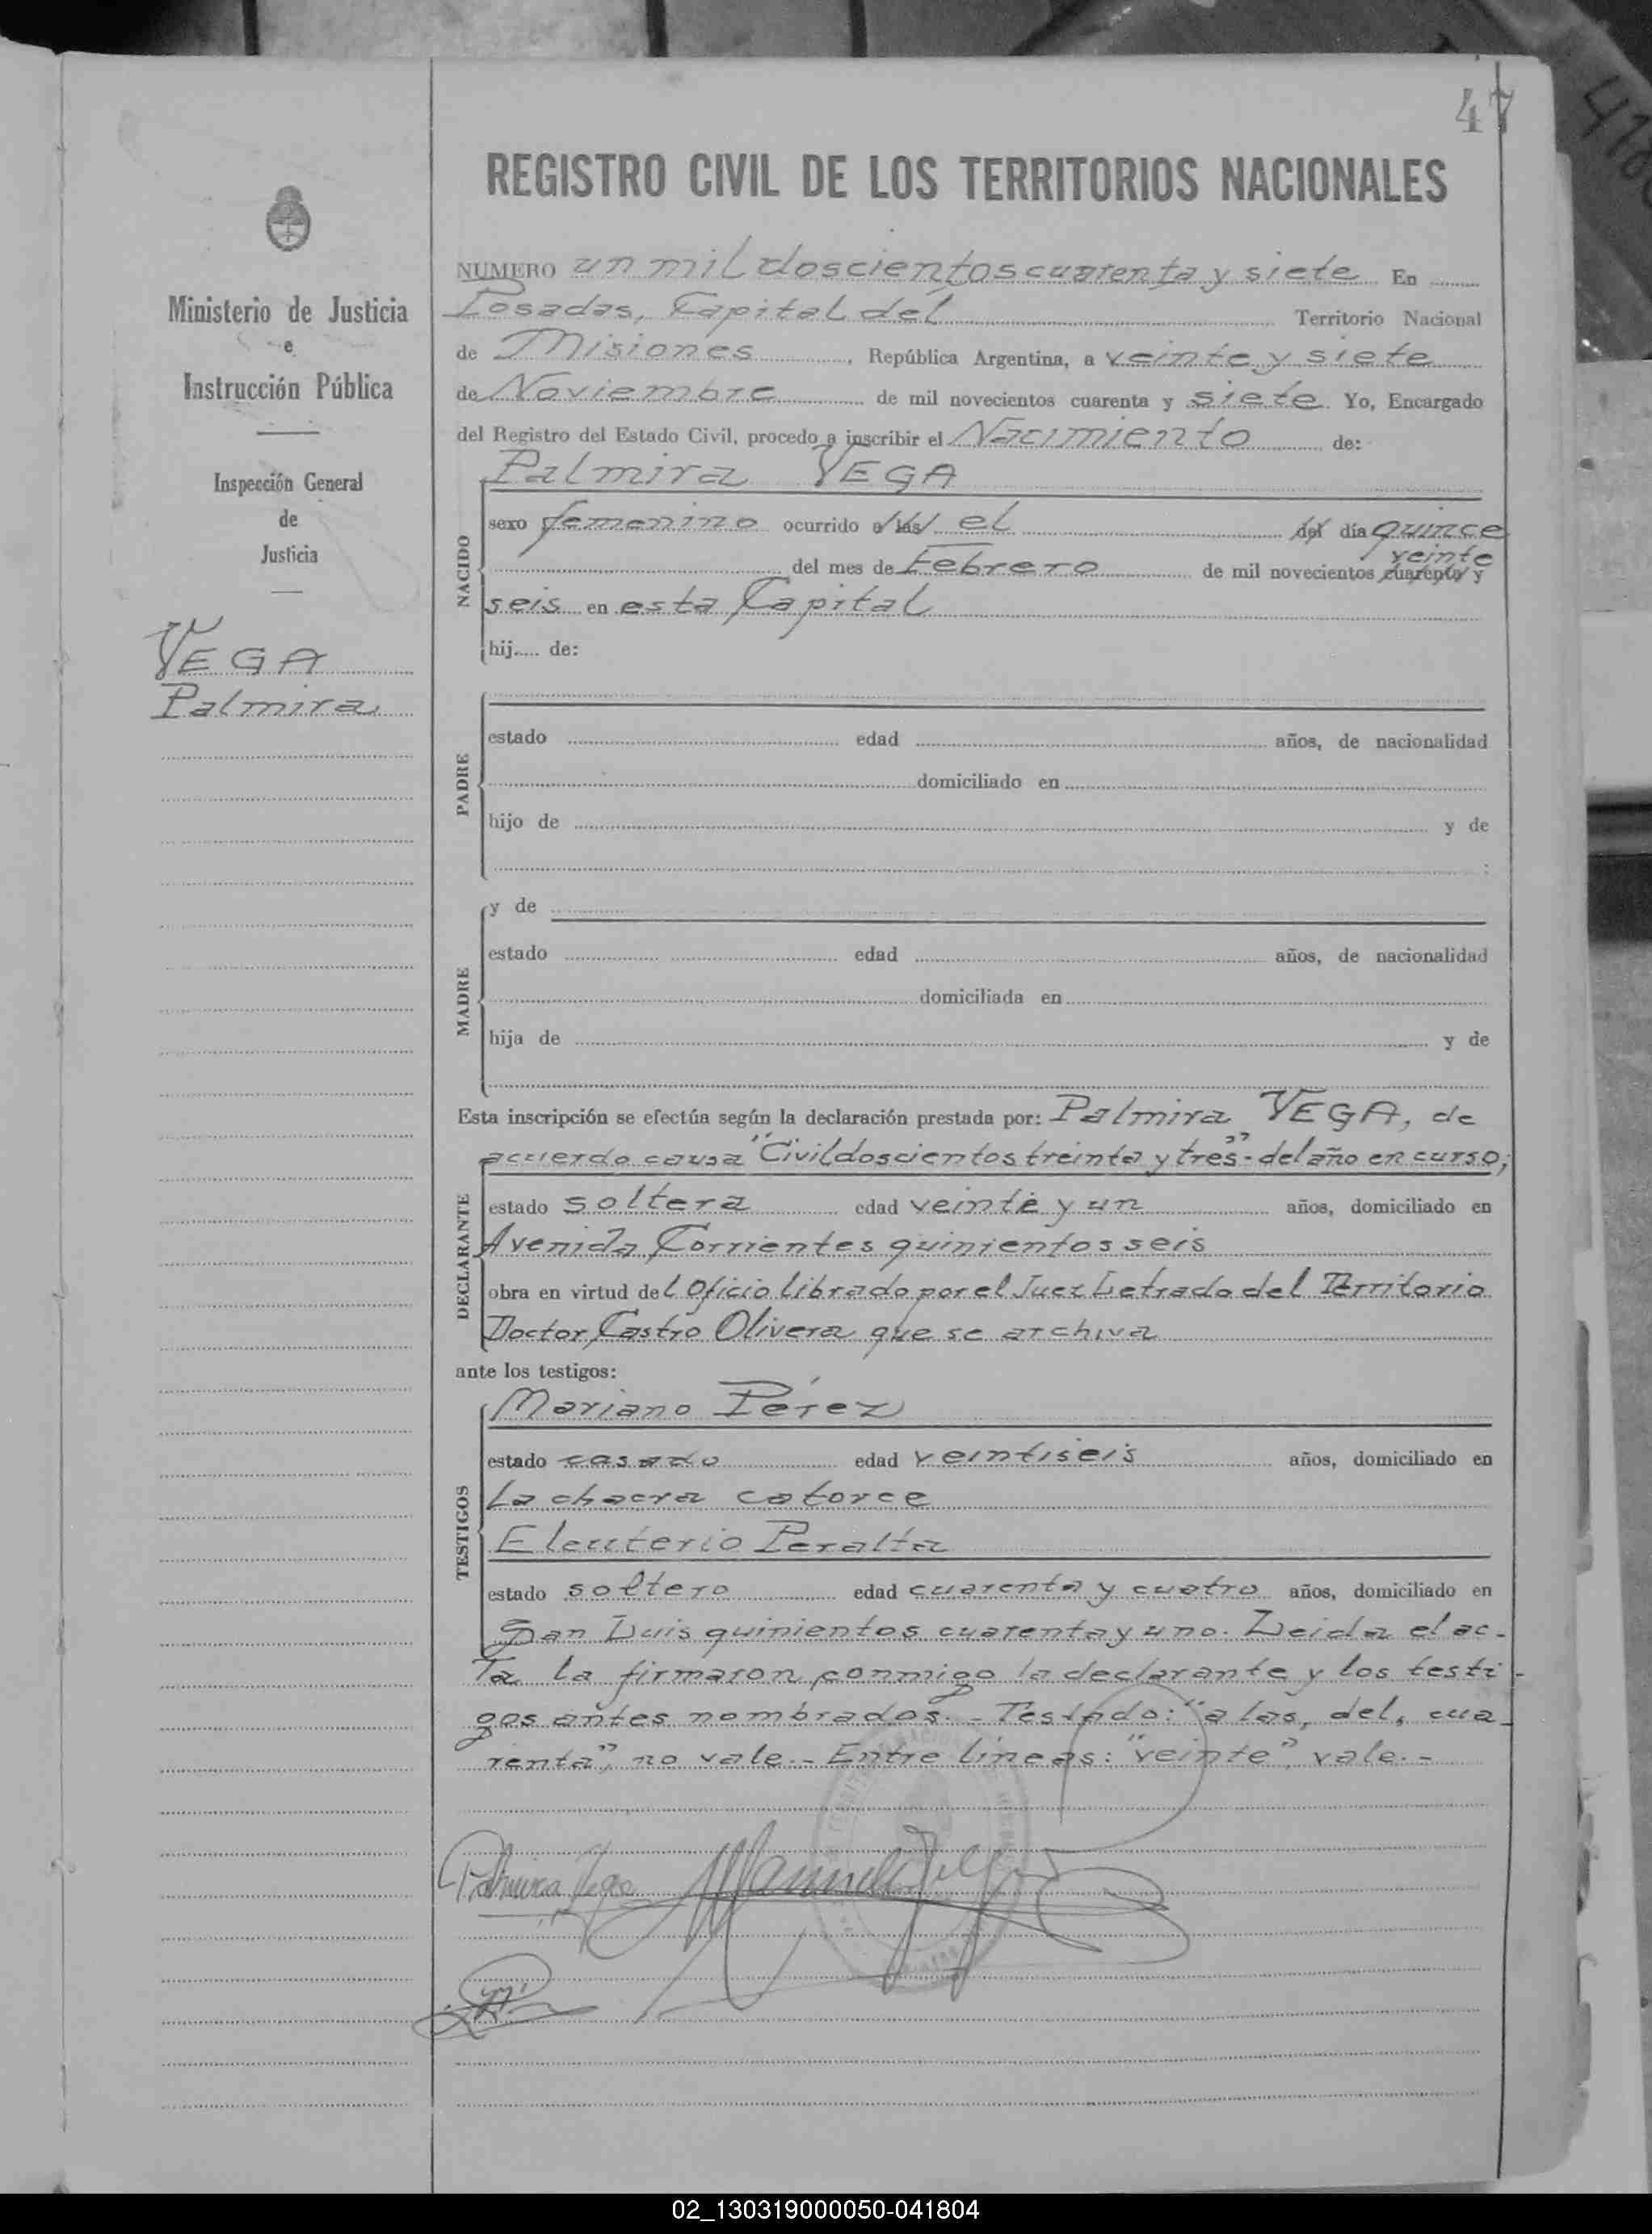 47
REGISTRO CIVIL DE LOS TERRITORIOS NACIONALES
Ministerio de Justicia
e
Instrucción Pública
Inspección General
de
Justicia
VEGA
Palmira
NUMERO un mil doscientos cuarenta y siete En
Posadas, Capital del Territorio Nacional
de Misiones, República Argentina, a veinte y siete
de Noviembre de mil novecientos cuarenta y siete Yo, Encargado
del Registro del Estado Civil, procedo a inscribir el Nacimiento de:
Palmira VEGA
NACIDO
sexo femenino ocurrido a las el del día quince
veinte
del mes de Febrero de mil novecientos cuarenta y
seis en esta Capital
hij..... de:
PADRE
estado edad años, de nacionalidad
domiciliado en
hijo de y de
MADRE
y de
estado edad años, de nacionalidad
domiciliada en
hija de y de
Esta inscripción se efectúa según la declaración prestada por: Palmira VEGA, de
acuerdo causa "Civil doscientos treinta y tres"- del año en curso;
DECLARANTE
estado soltera edad veinte y un años, domiciliado en
Avenida Corrientes quinientos seis
obra en virtud del Oficio librado por el Juez Letrado del Territorio
Doctor Castro Olivera que se archiva
ante los testigos:
TESTIGOS
Mariano Pérez
estado casado edad veintiseis años, domiciliado en
La chacra catorce
Eleuterio Peralta
estado soltero edad cuarenta y cuatro años, domiciliado en
San Luis quinientos cuarenta y uno. Leida el ac-
ta la firmaron conmigo la declarante y los testi-
gos antes nombrados.- Testado: "a las, del, cua-
renta", no vale.- Entre lineas: "veinte", vale.-
Palmira Vega
02_130319000050-041804